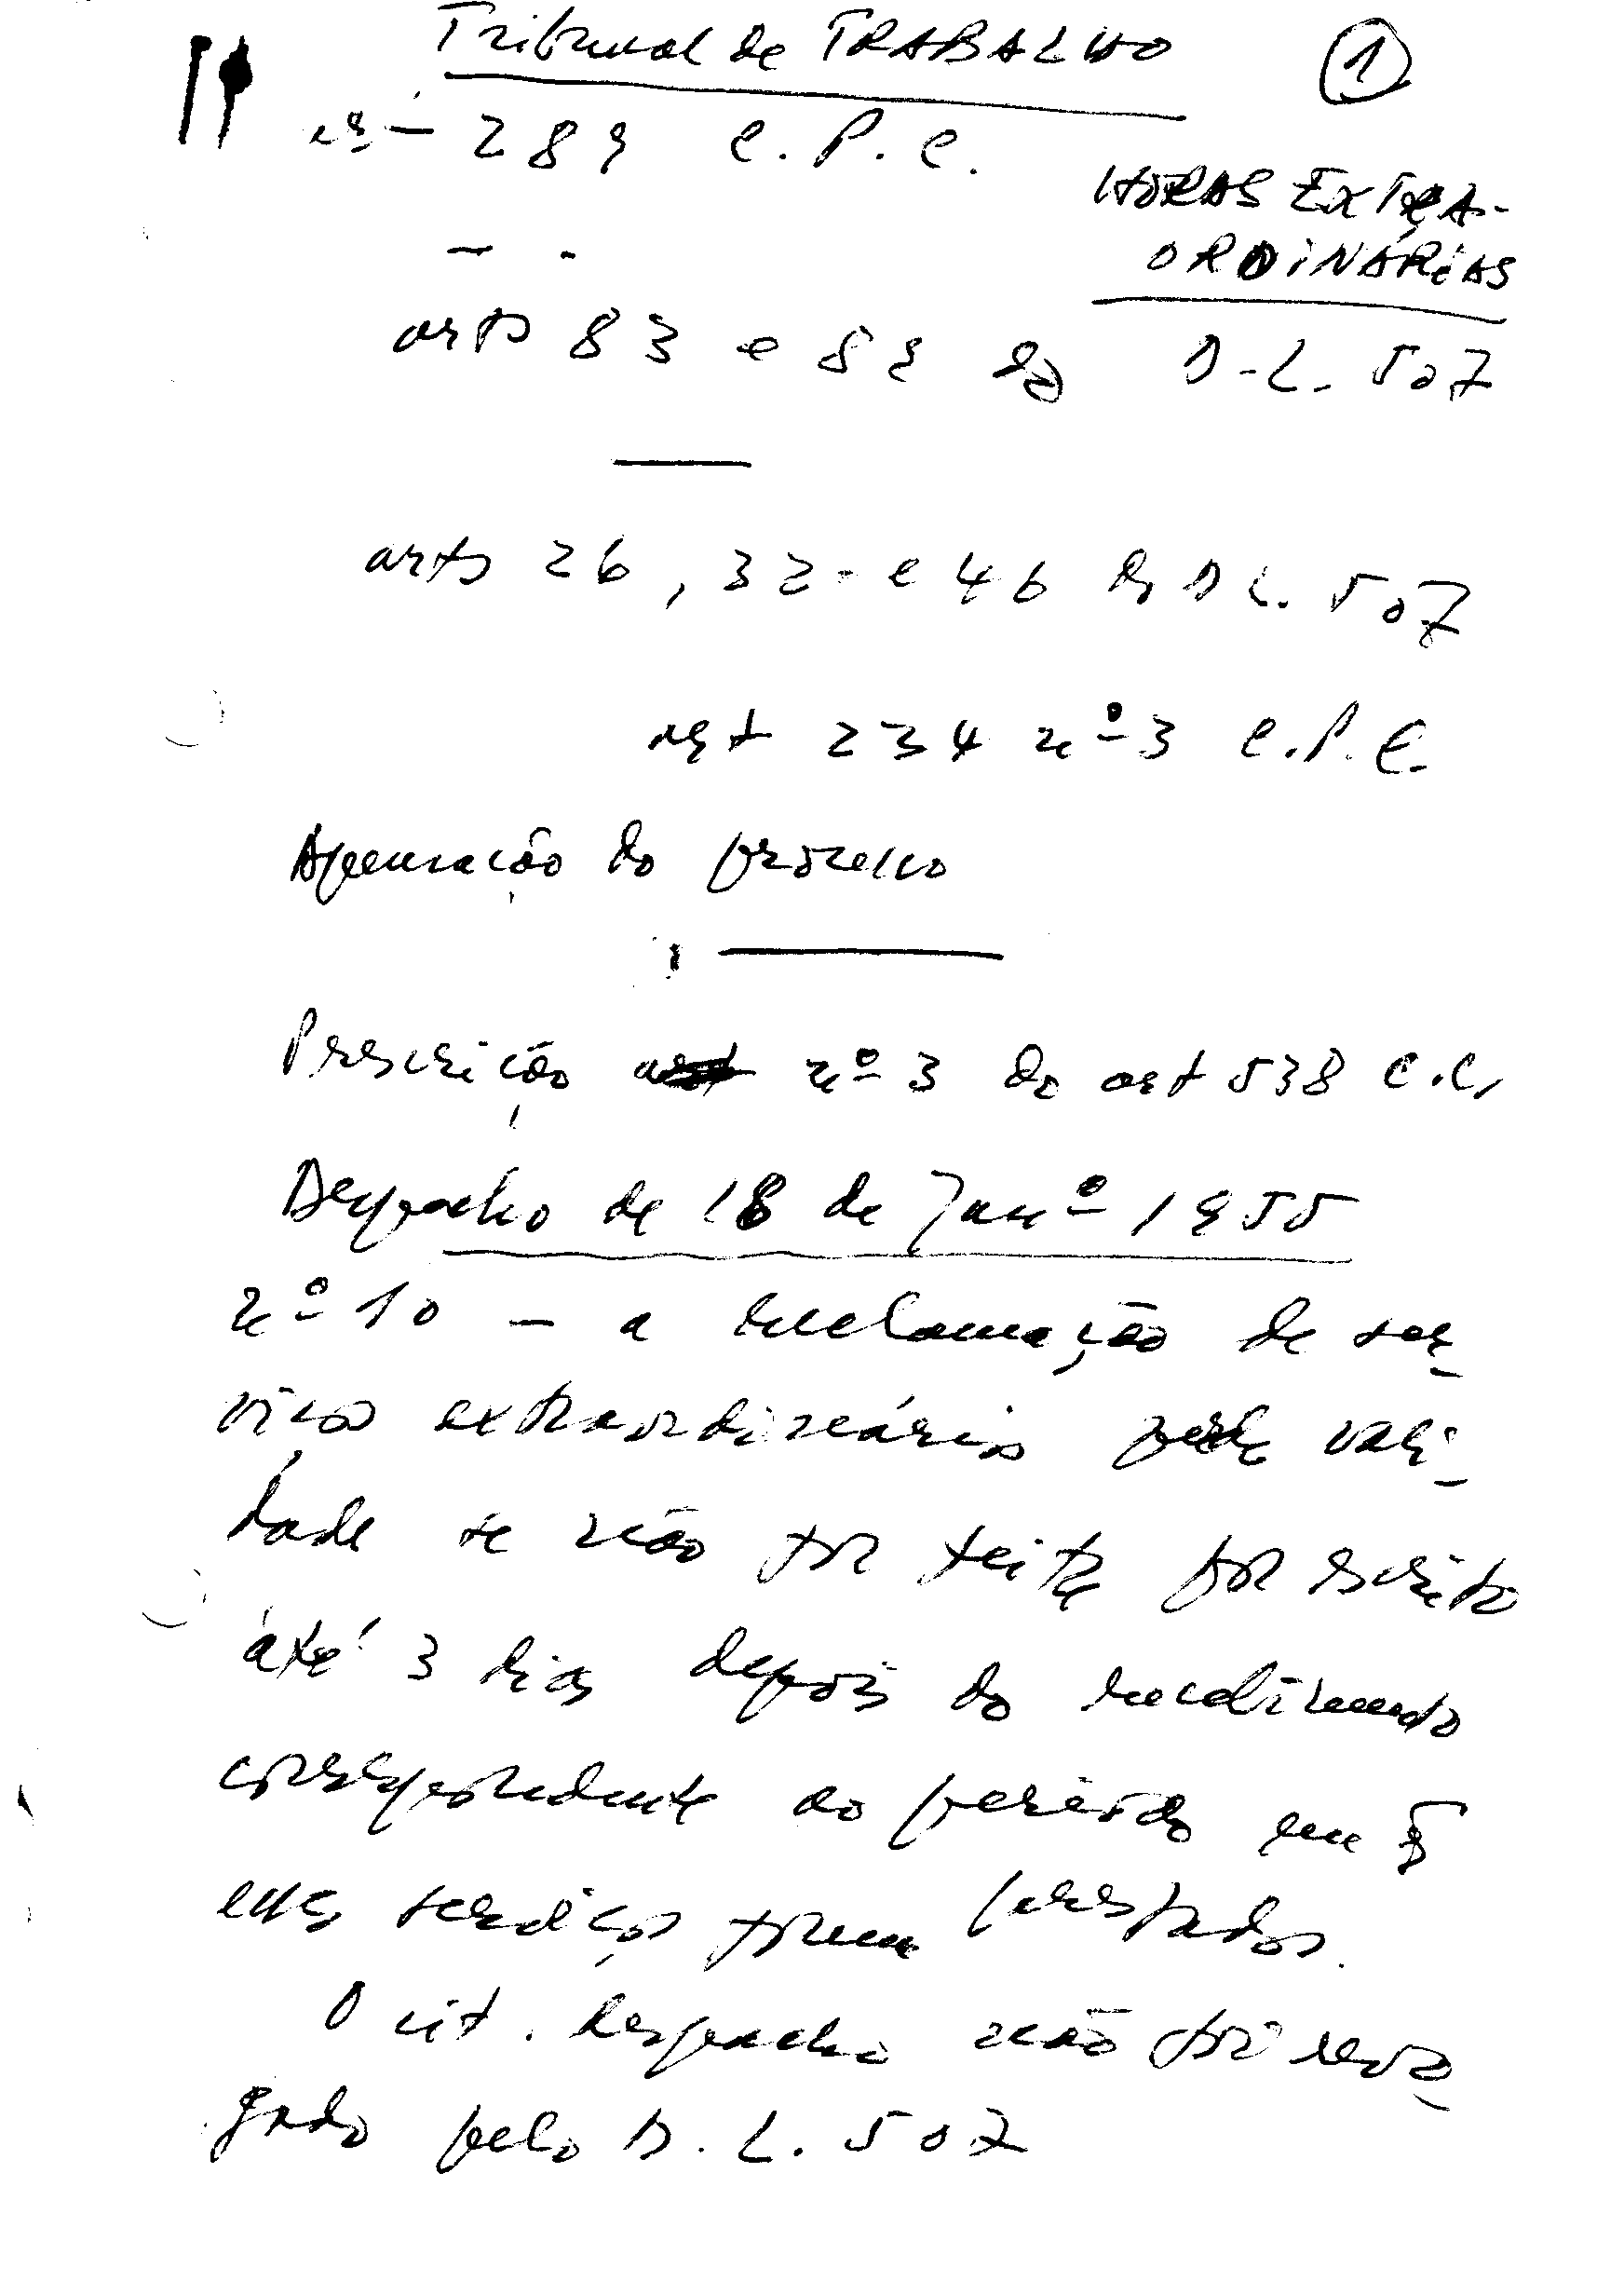 Tribunal de TRABALHO
1
289 C.P.C.
HORAS EXTRA-
ORDINÁRIAS
arts 83 e 89 do D.L. 507
arts 26, 32 e 46 do D L. 507
art 234 nº 3 C.P.C.
Apensação do processo
Prescrição nº 3 do art 538 C.C.
Despacho de 18 de Janº 1955
nº 10 - a reclamação de ser-
viço extraordinário perde vali-
dade se não for feita por escrito
até 3 dias depois do recebimento
correspondente ao período em q̄
esses serviços forem prestados.
O cit. despacho não foi revo-
gado pelo D.L. 507